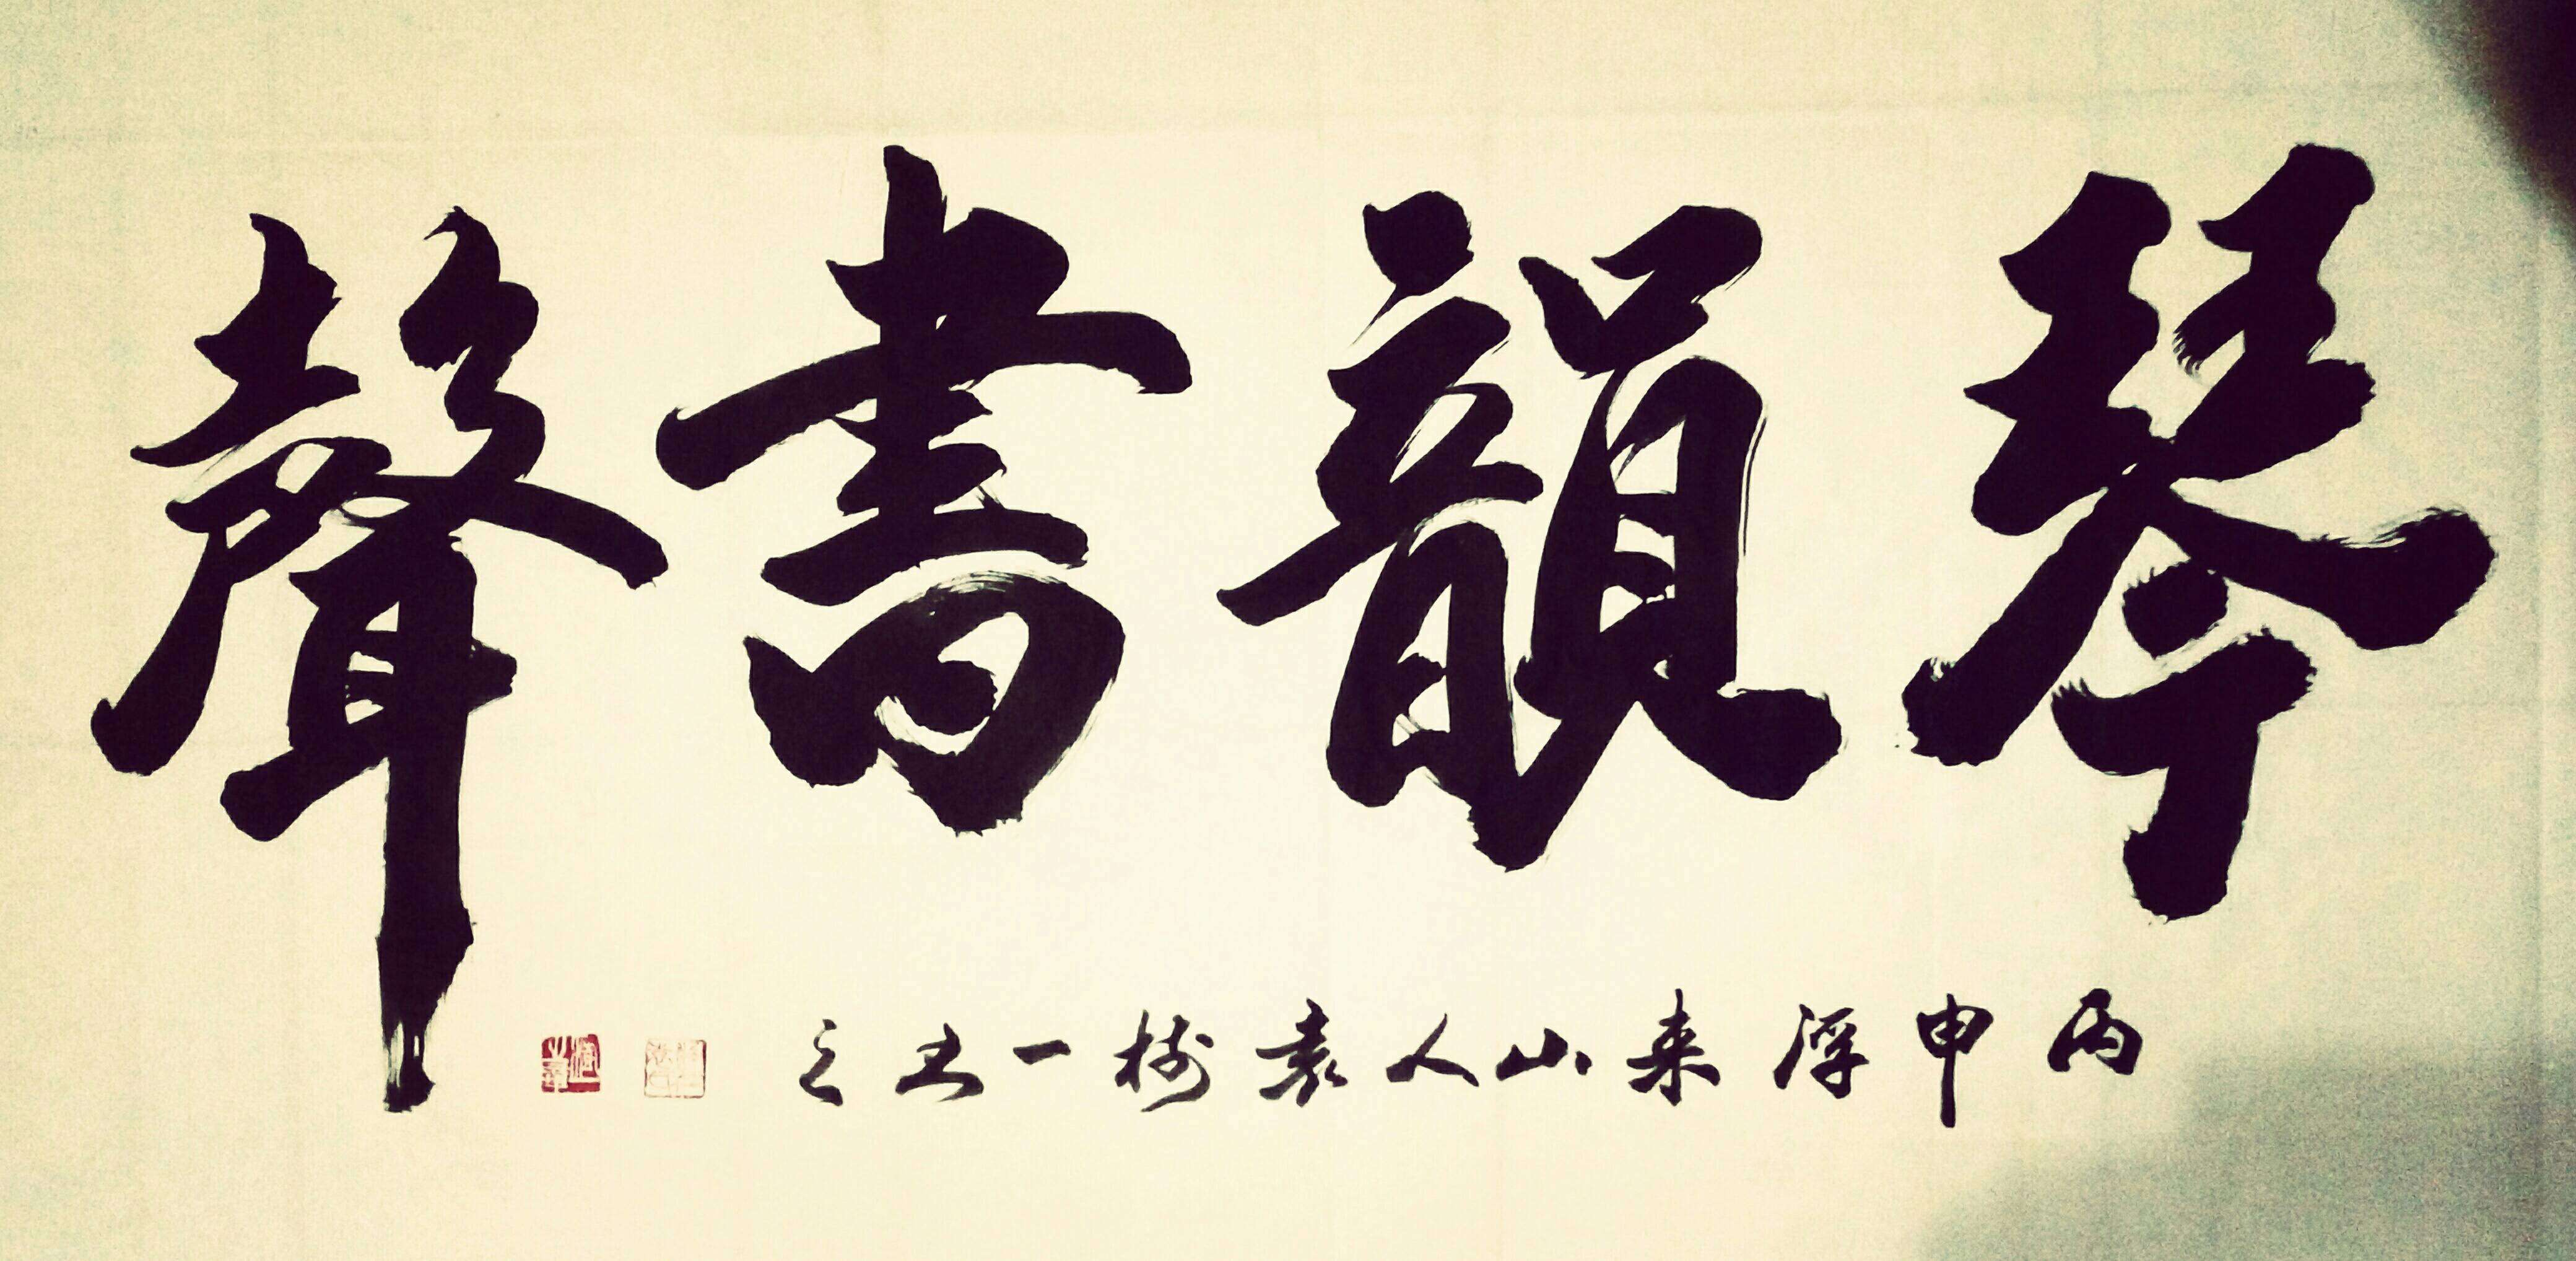 琴韻書聲
丙申浮来山人袁樹一书之